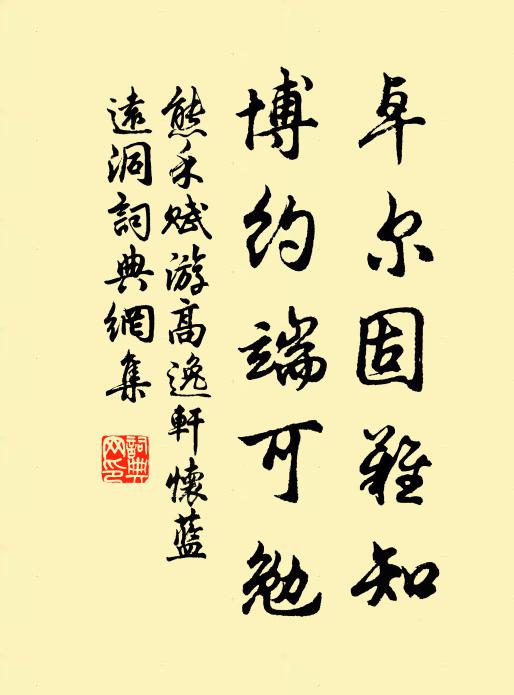 卓尔固難知
博约端可勉
熊禾赋游高逸軒懷藍
遠洞詞典網集
詞典网印